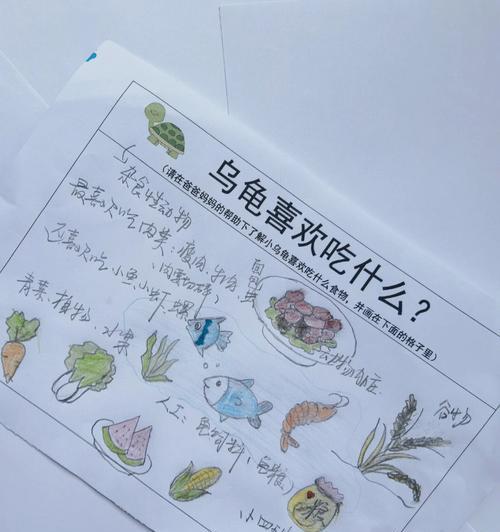 乌龟喜欢吃什么？
（请在爸爸妈妈的帮助下了解小乌龟喜欢吃什么食物，并画在下面的格子里）
杂食性动物
最喜欢吃肉类：瘦肉、
（肉要切碎）
还喜欢吃小鱼、小虾、螺
青菜、植物、水果
谷物
人工：龟饲料、鱼粮